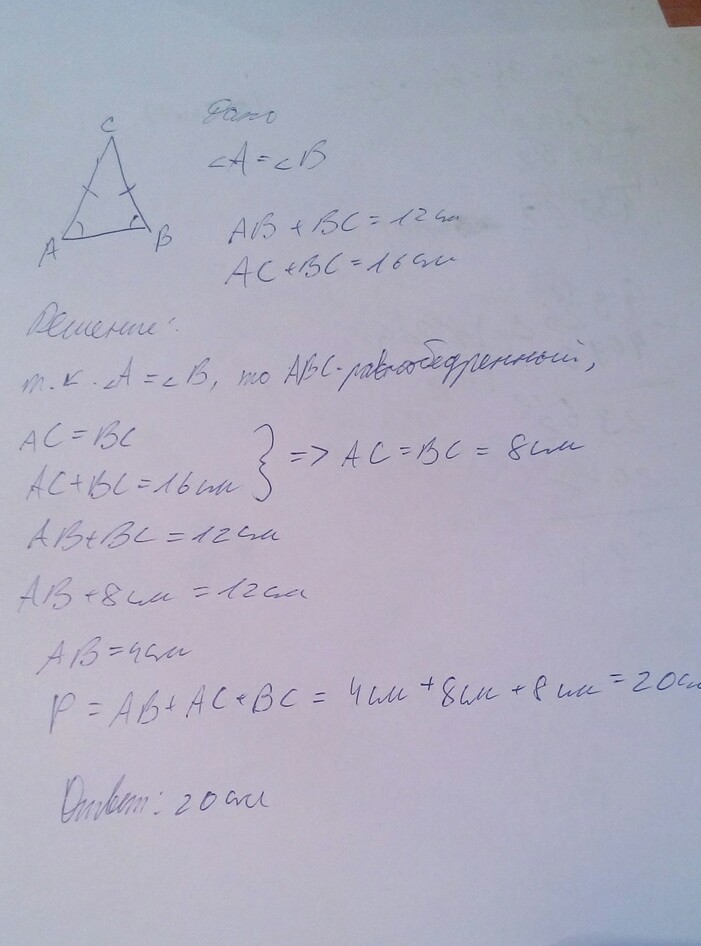 Дано
C
∠A = ∠B
A
B
AB + BC = 12см
AC + BC = 16см
Решение:
т.к. ∠A = ∠B, то ABC - равнобедренный,
AC = BC
AC + BC = 16см } => AC = BC = 8см
AB + BC = 12см
AB + 8см = 12см
AB = 4см
P = AB + AC + BC = 4см + 8см + 8см = 20см
Ответ: 20см